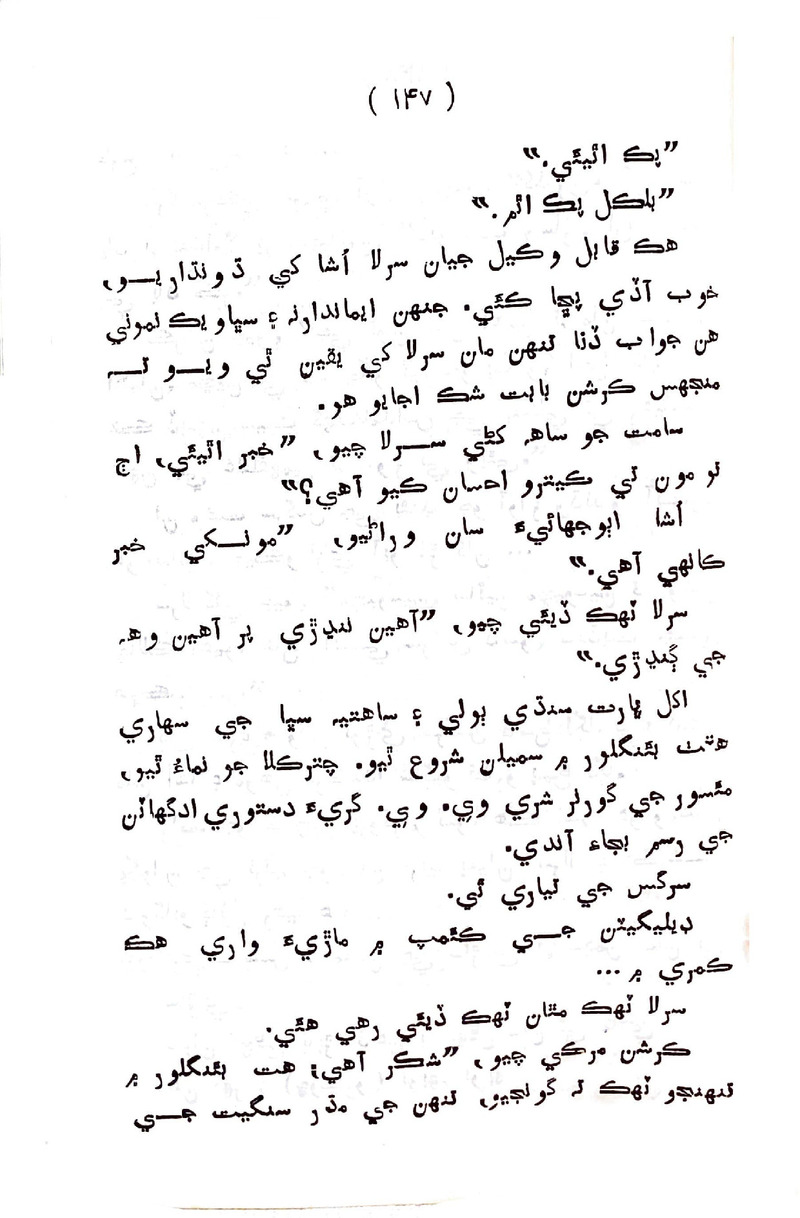 ( ۱۴۷ )
”پڪ اٿيئي.“
”بلڪل پڪ اٿم.“
هڪ قابل وڪيل جيان سرلا اُشا کي ڌونڌاريــو،
خوب آڏي پڇا ڪئي. جنهن ايماندارنہ ۽ سڀاويڪ نموني
هن جواب ڏنا تنهن مان سرلا کي يقين ٿي ويــو تــہ
منجهس ڪرشن بابت شڪ اجايو هو.
سامت جو ساهہ کڻي ســرلا چيو، ”خبر اٿيئي، اڄ
تو مون تي ڪيترو احسان ڪيو آهي؟“
اُشا اٻوجهائيءَ سان وراڻيو، ”مونــکي خبر
ڪانهي آهي.“
سرلا ٽهڪ ڏيئي چيو، ”آهين ننڍڙي پر آهين وهہ
جي ڳنڍڙي.“
اکل ڀارت سنڌي ٻولي ۽ ساهتيہ سڀا جي سهاري
هٿ بئنگلور ۾ سميلن شروع ٿيو. چترڪلا جو نماءُ ٿيو،
مئسور جي گورنر شري وي. وي. گريءَ دستوري ادگهاٽن
جي رسم بجاءِ آندي.
سرگس جي تياري ٿي.
ڊيليگيٽن جــي ڪئمپ ۾ ماڙيءَ واري هڪ
ڪمري ۾ ...
سرلا ٽهڪ مٿان ٽهڪ ڏيئي رهي هئي.
ڪرشن مرڪي چيو، ”شڪر آهي؛ هت بئنگلور ۾
تنهنجو ٽهڪ تہ گونجيو، تنهن جي مڌر سنگيت جــي